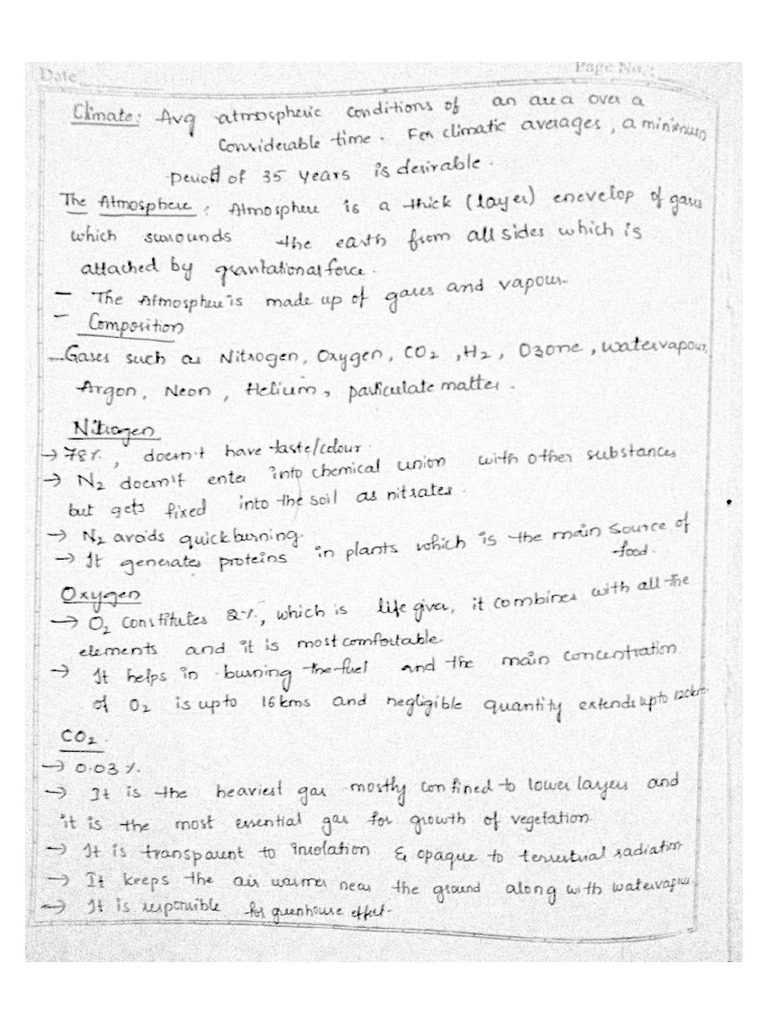 Date
Page No. :
Climate: Avg atmospheric conditions of an area over a
considerable time. For climatic averages, a minimum
period of 35 years is desirable.
The Atmosphere: Atmosphere is a thick (layer) enevelop of gases
which surrounds the earth from all sides which is
attached by gravitational force.
- The Atmosphere is made up of gases and vapour.
- Composition
- Gases such as Nitrogen, Oxygen, CO2, H2, Ozone, watervapour,
Argon, Neon, Helium, particulate matter.
Nitrogen
→ 78%, doesn't have taste/colour.
→ N2 doesn't enter into chemical union with other substances
but gets fixed into the soil as nitrates.
→ N2 avoids quick burning.
→ It generates proteins in plants which is the main source of
food.
Oxygen
→ O2 constitutes 21%, which is life giver, it combines with all the
elements and it is most comfortable.
→ It helps in burning the fuel and the main concentration
of O2 is upto 16kms and negligible quantity extends upto 120km.
CO2.
→ 0.03%.
→ It is the heaviest gas mostly confined to lower layers and
it is the most essential gas for growth of vegetation
→ It is transparent to insolation & opaque to terrestrial radiation
→ It keeps the air warmer near the ground along with watervapour.
→ It is responsible for greenhouse effect.